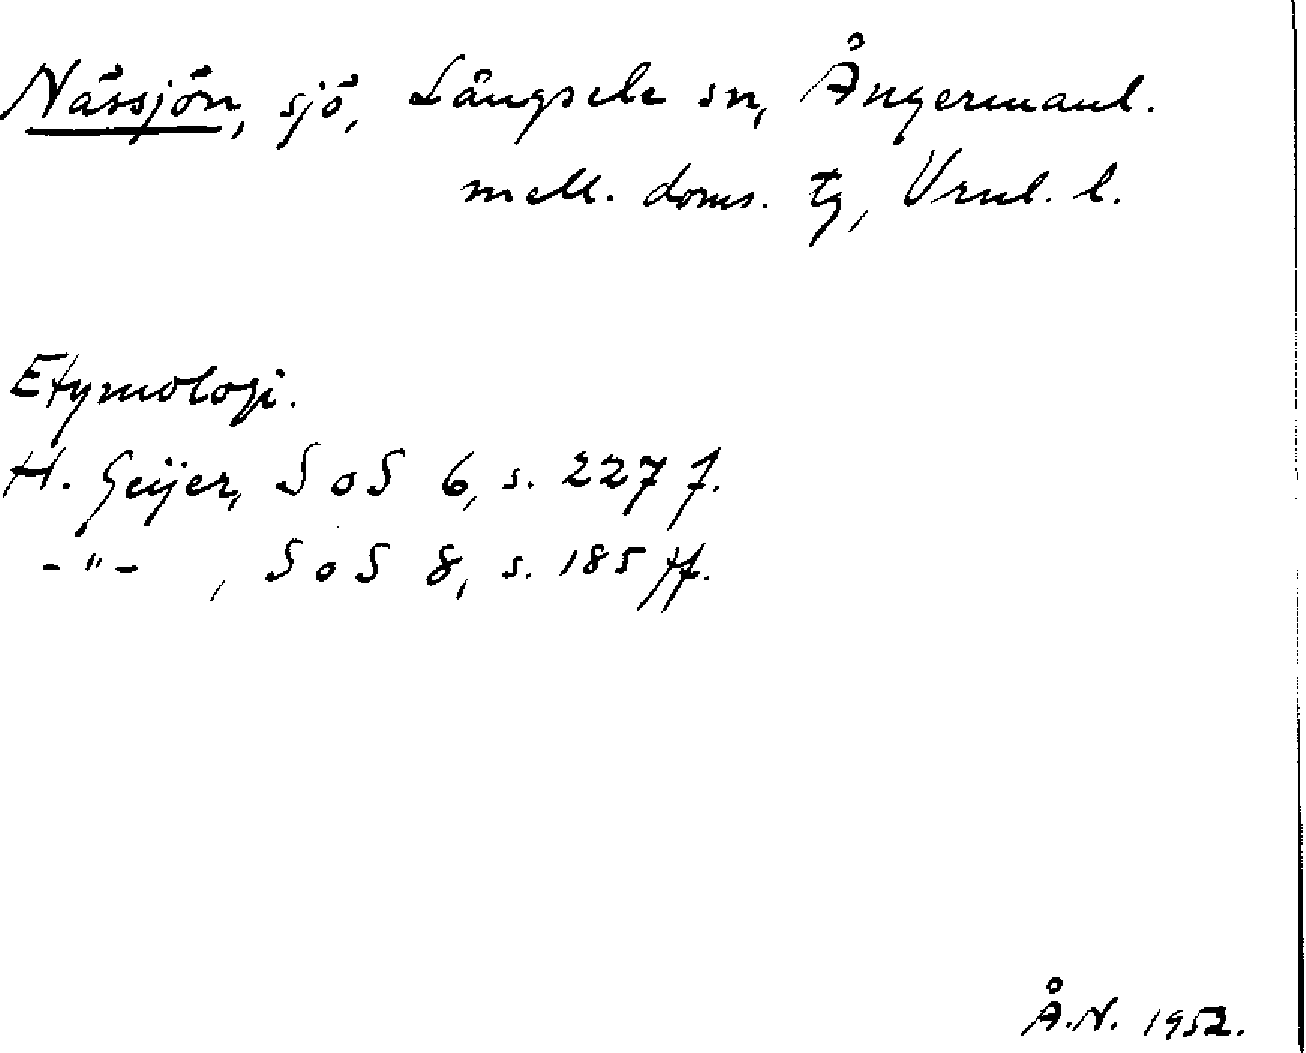 Nässjön, sjö, Långsele sn, Ångermanl.
mell. doms. tg, Vrnl. l.
Etymologi.
H. Geijer, S o S 6, s. 227 f.
-"- , S o S 8, s. 185 ff.
Å.N. 1952.